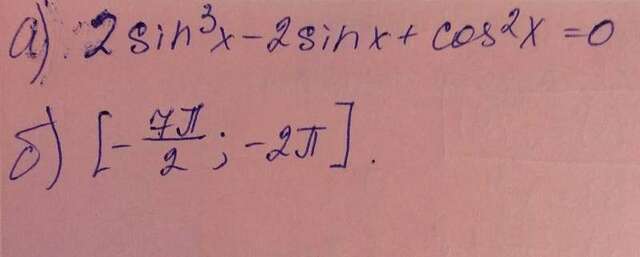 а) 2 sin³x - 2 sin x + cos²x = 0
б) [-7π/2; -2π].